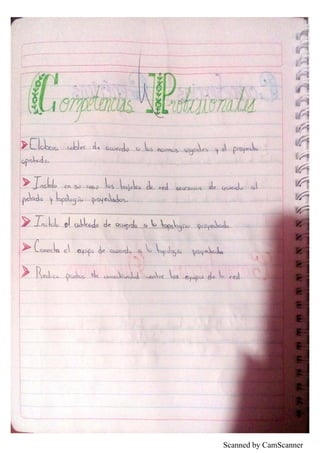 Competencias Profesionales
Elabora cables de acuerdo a las normas vigentes y al proyecto
aprobado.
Instala en su caso las tarjetas de red necesarias de acuerdo al
y topologia proyectados.
Instala el cableado de acuerdo a la topologia proyectada
Conecta el equipo de acuerdo a la topologia proyectada
Realiza pruebas de conectividad entre los equipos de la red
Scanned by CamScanner